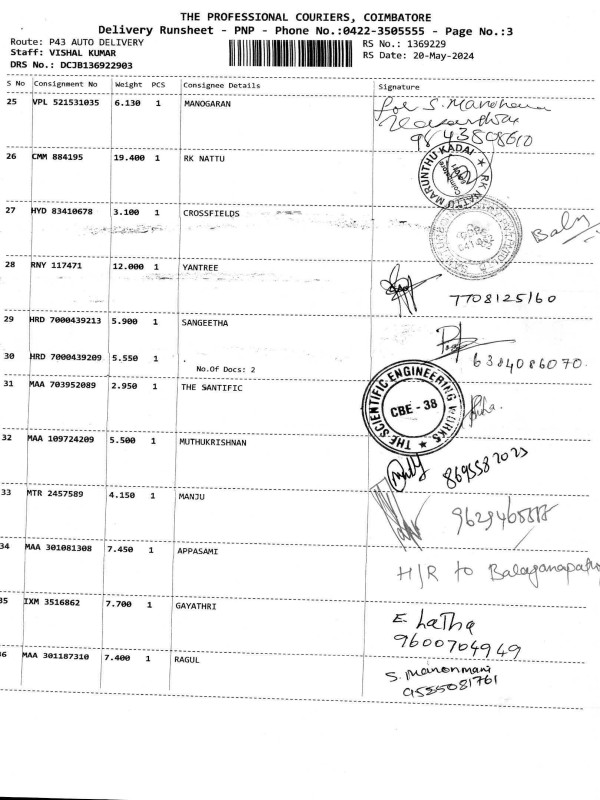 THE PROFESSIONAL COURIERS, COIMBATORE
Delivery Runsheet - PNP - Phone No.:0422-3505555 - Page No.:3
Route: P43 AUTO DELIVERY
RS No.: 1369229
Staff: VISHAL KUMAR
RS Date: 20-May-2024
DRS No.: DCJB136922903
S No Consignment No Weight PCS Consignee Details Signature
25 VPL 521531035 6.130 1 MANOGARAN
For S. Manohara
9843808610
26 CMM 884195 19.400 1 RK NATTU
RK NATTU MARUNTHU KADAI ★
Coimbatore
27 HYD 83410678 3.100 1 CROSSFIELDS
Baly
28 RNY 117471 12.000 1 YANTREE
7708125160
29 HRD 7000439213 5.900 1 SANGEETHA
30 HRD 7000439209 5.550 1
6384086070.
No.Of Docs: 2
31 MAA 703952089 2.950 1 THE SANTIFIC
★ THE SCIENTIFIC ENGINEERING WORKS
CBE - 38
32 MAA 109724209 5.500 1 MUTHUKRISHNAN
8695582023
33 MTR 2457589 4.150 1 MANJU
34 MAA 301081308 7.450 1 APPASAMI
H/R to Balaganapathy
35 IXM 3516862 7.700 1 GAYATHRI
E. Latha
9600704949
36 MAA 301187310 7.400 1 RAGUL
S. Manonmani
9585081761